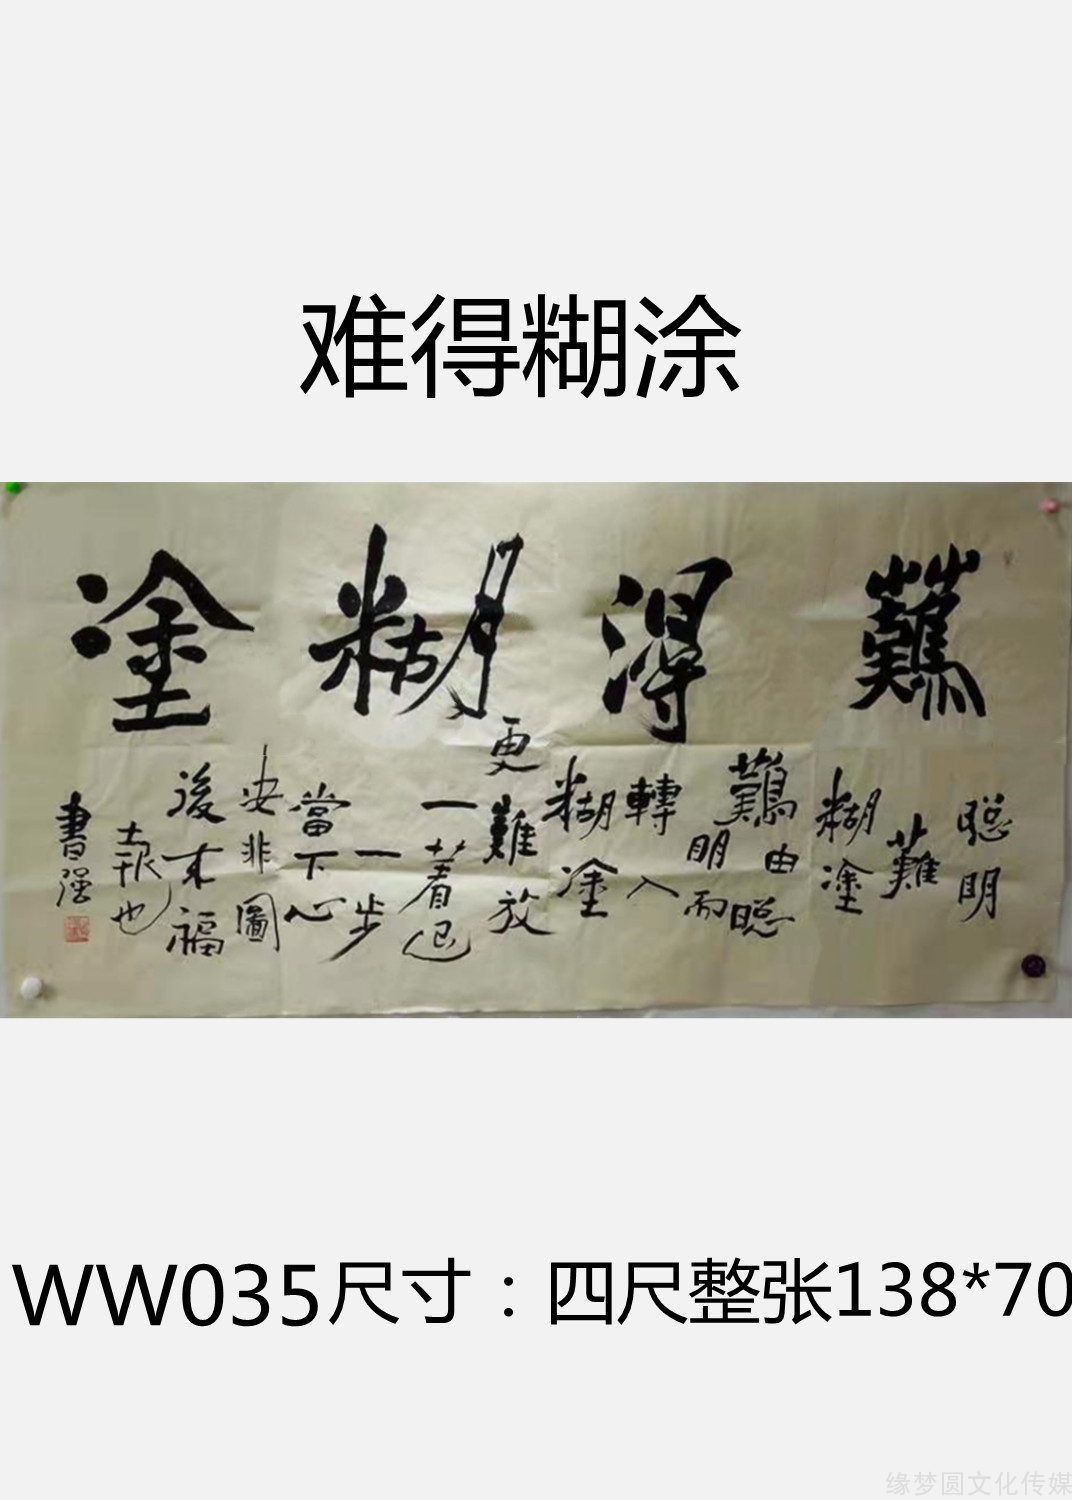 难得糊涂
難得糊塗
聪明
難
糊塗
難由聪
明而
轉入
糊塗
更難放
一着退
一步
當下心
安非圖
後来福
報也
書强
WW035尺寸：四尺整张138*70
缘梦圆文化传媒